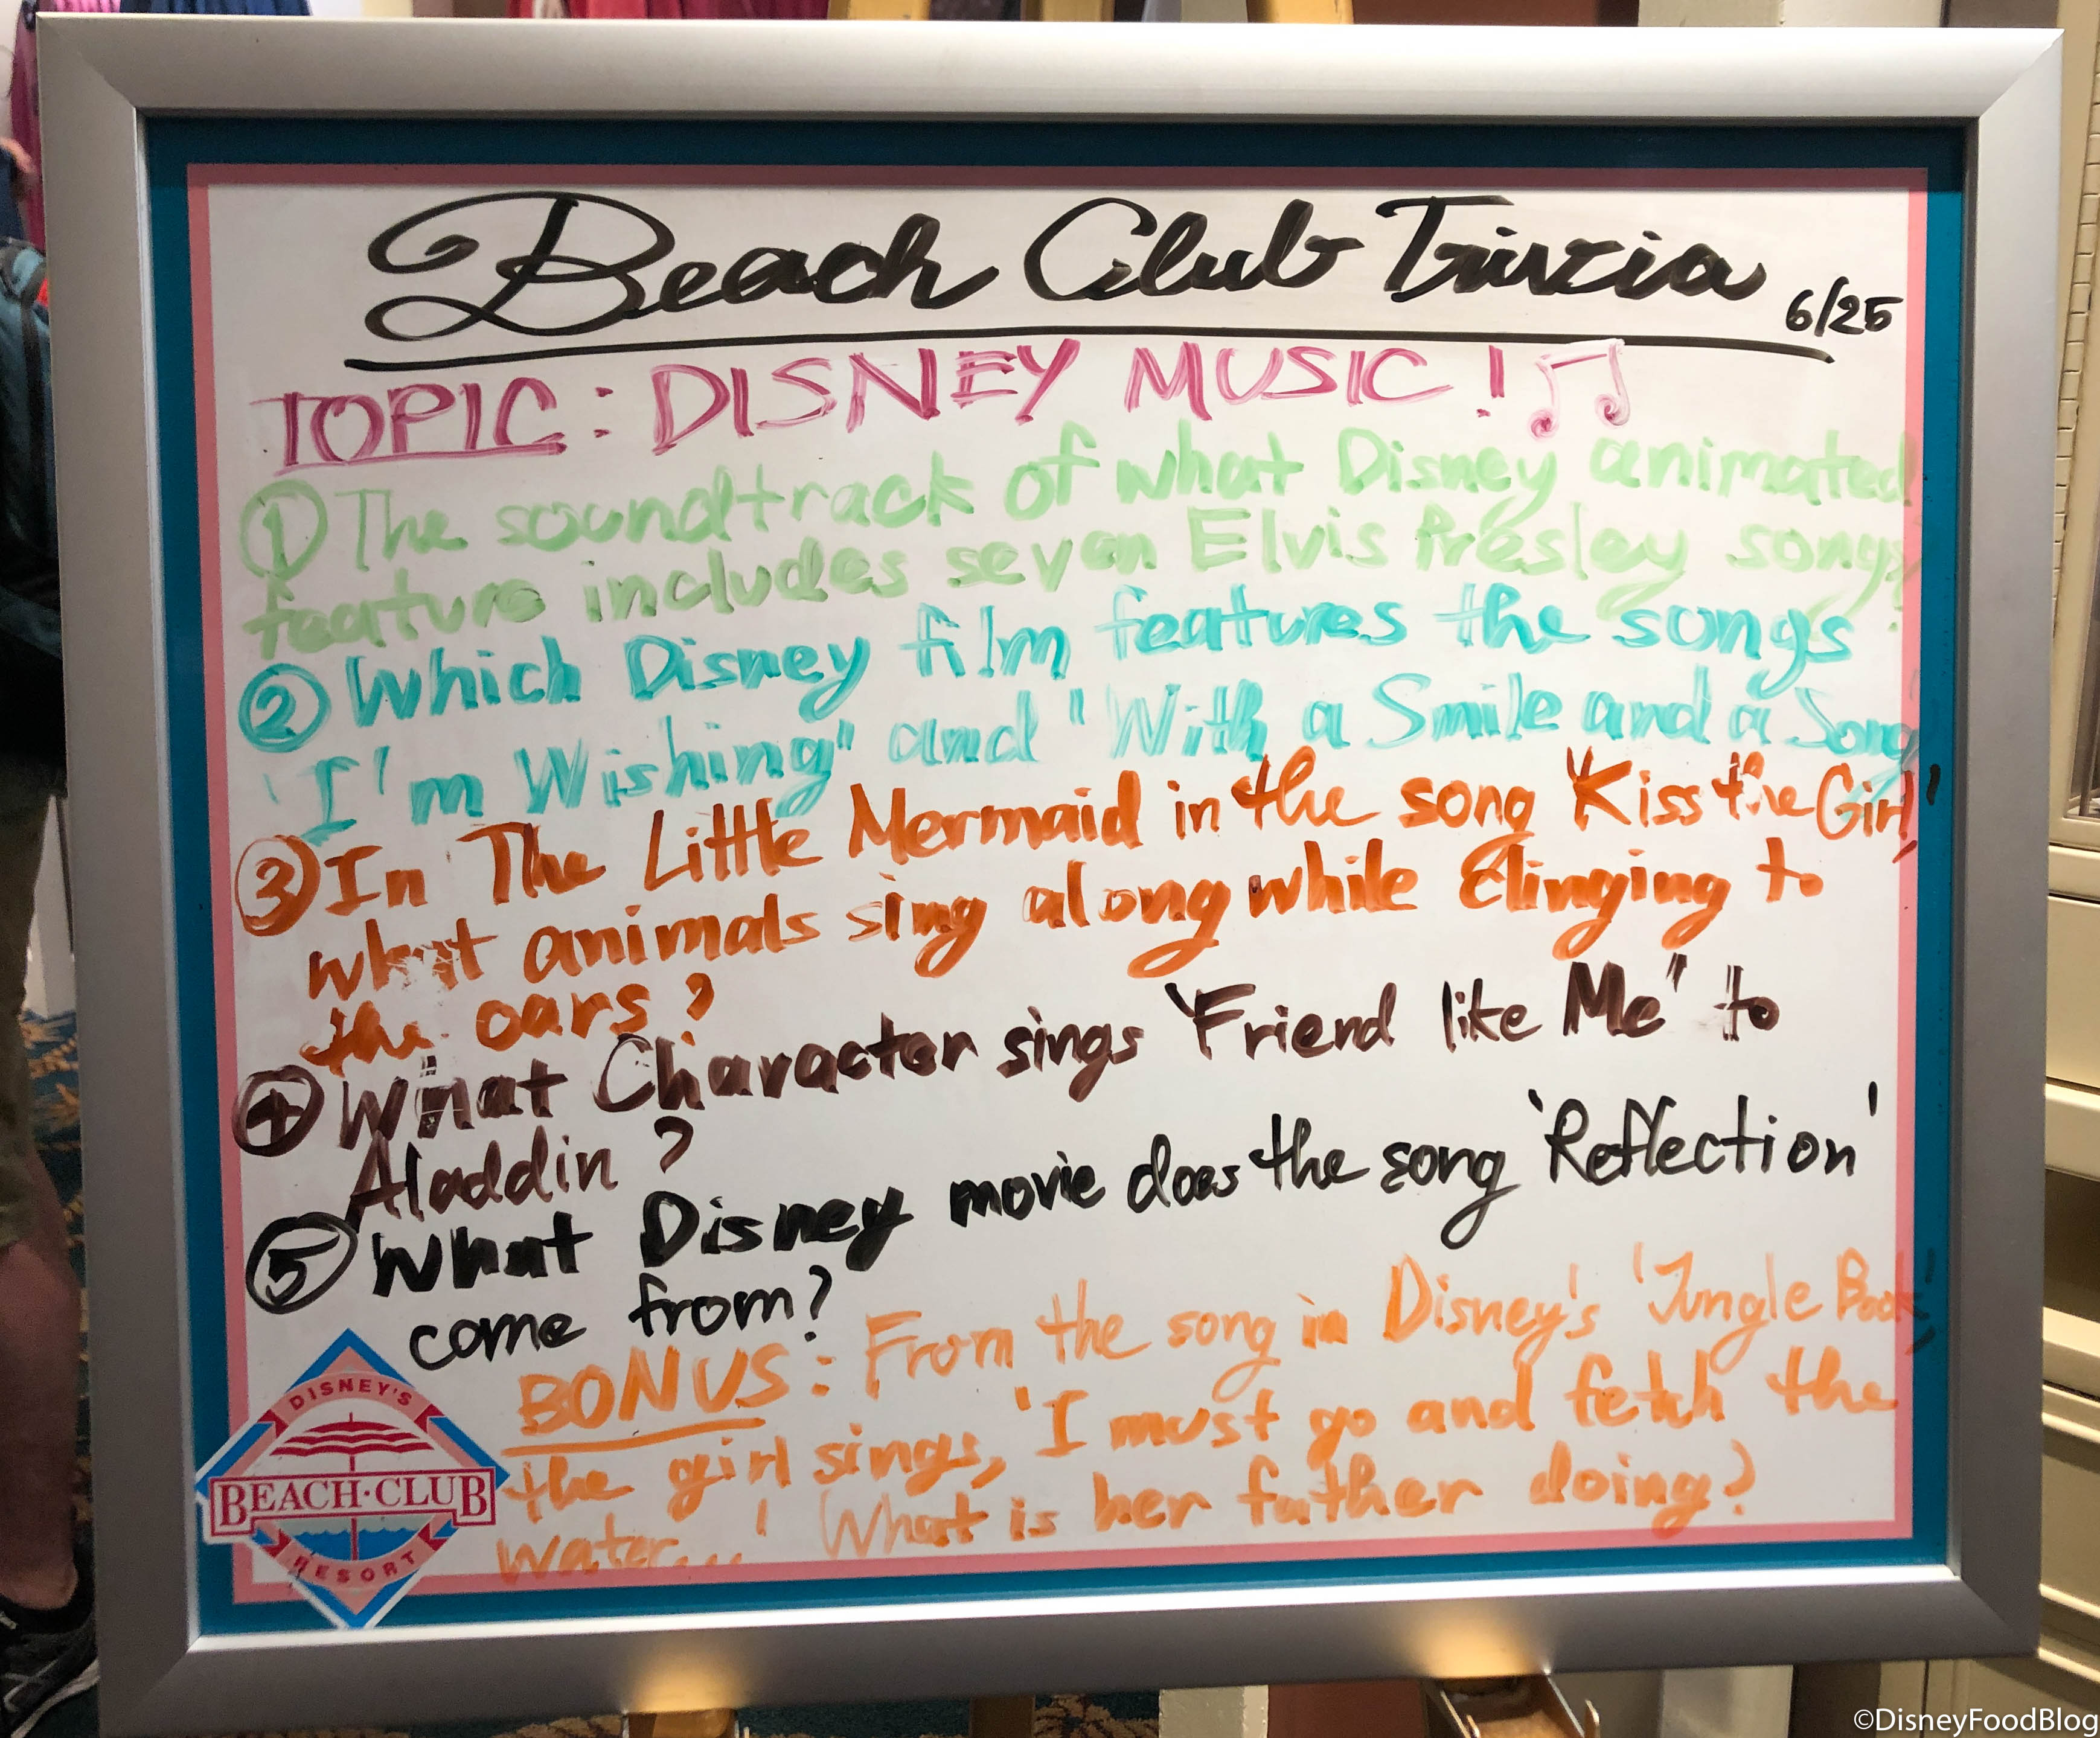 Beach Club Trivia 6/25
TOPIC: DISNEY MUSIC! ♫
① The soundtrack of what Disney animated
feature includes seven Elvis Presley songs?
② Which Disney film features the songs
'I'm Wishing" and "With a Smile and a Song'
③ In The Little Mermaid in the song 'Kiss the Girl,'
what animals sing along while clinging to
the oars?
④ What Character sings 'Friend like Me' to
Aladdin?
⑤ What Disney movie does the song 'Reflection'
come from?
BONUS: From the song in Disney's 'Jungle Book,'
the girl sings, 'I must go and fetch the
water...' What is her father doing?
DISNEY'S
BEACH·CLUB
RESORT
©DisneyFoodBlog